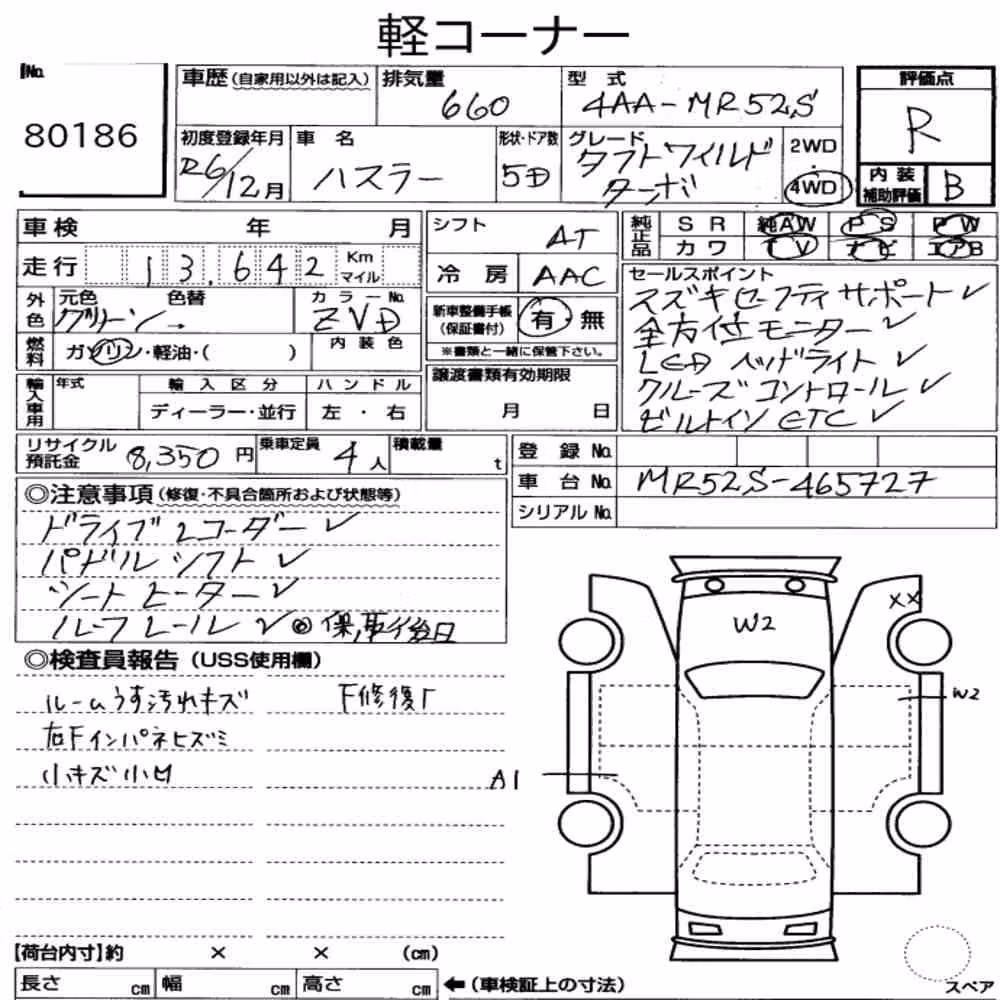 軽コーナー
No.
80186
車歴(自家用以外は記入)
排気量
660
型式
4AA-MR52S
評価点
R
初度登録年月
R6/12月
車名
ハスラー
形状・ドア数
5D
グレード
タフトワイルド
ターボ
2WD
・
4WD
内装
補助評価
B
車検 年 月
シフト
AT
純正品
SR 純AW PS PW
カワ TV ナビ エアB
走行 13,642 Km
マイル
冷房 AAC
セールスポイント
スズキセーフティサポート✓
全方位モニター✓
LEDヘッドライト✓
クルーズコントロール✓
ビルトインETC✓
外色
元色 色替
グリーン →
カラーNo.
ZVD
新車整備手帳
(保証書付)
有・無
※書類と一緒に保管下さい。
燃料
ガソリン・軽油・( )
内装色
輸入車用
年式
輸入区分
ハンドル
ディーラー・並行
左・右
譲渡書類有効期限
月 日
リサイクル
預託金
8,350円
乗車定員
4人
積載量
t
登録No.
車台No. MR52S-465727
シリアルNo.
◎注意事項(修復・不具合箇所および状態等)
ドライブレコーダー✓
パドルシフト✓
シートヒーター✓
ルーフレール✓ ◎保,車後日
◎検査員報告(USS使用欄)
ルームうす汚れキズ
F修復Γ
右Fインパネヒズミ
小キズ小凹
XX
W2
W2
A1
【荷台内寸】約 × × (cm)
長さ cm
幅 cm
高さ cm
←(車検証上の寸法)
スペア